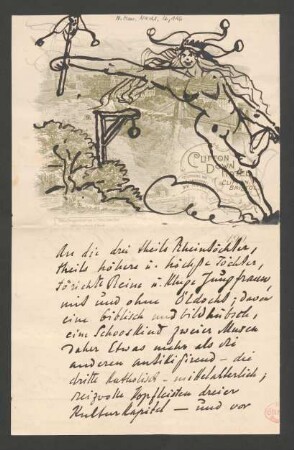 CLIFTON
DOWN
BRISTOL
An die drei theils Rheintöchter,
theils höhere u. höchste Töchter,
törichte Reine u. kluge Jungfrauen,
mit und ohne Öldocht; davon
eine biblisch und bildhübsch,
ein Schooskind zweier Musen
daher Etwas mehr als die
anderen antikifirend – die
dritte katholisch – mittelalterlich;
reizvolle Kopfleisten dreier
Kulturkapitel – und vor